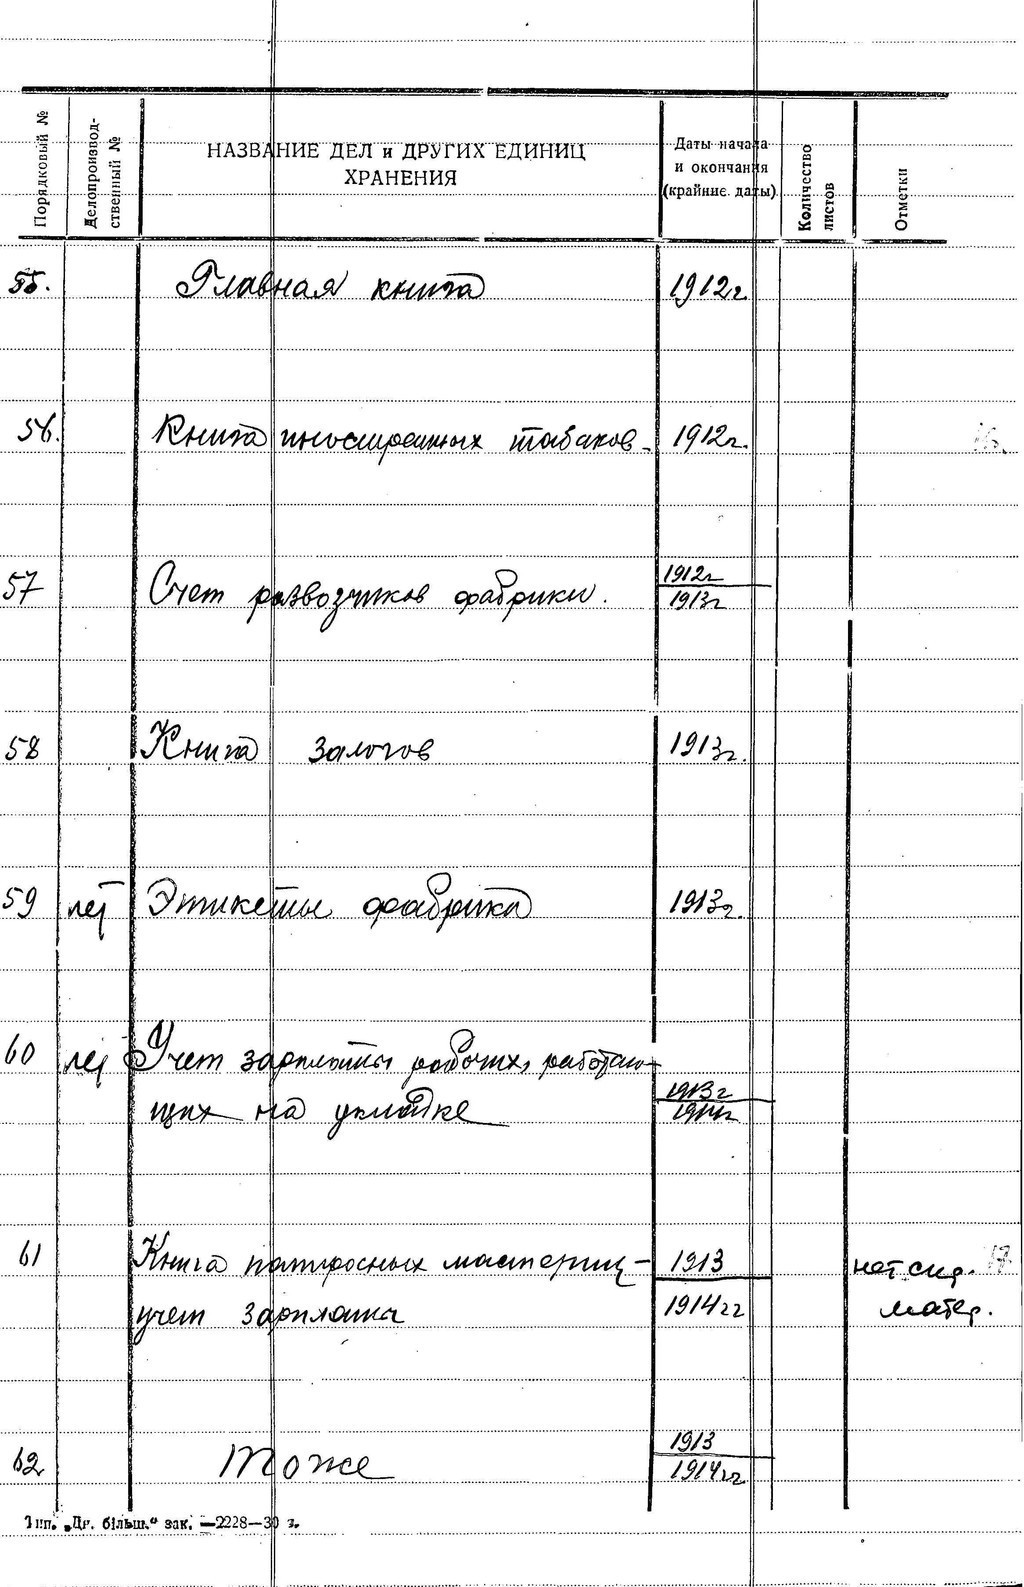 Порядковый №
Делопроизвод-
ственный №
НАЗВАНИЕ ДЕЛ и ДРУГИХ ЕДИНИЦ
ХРАНЕНИЯ
Даты начала
и окончания
(крайние даты)
Количество
листов
Отметки
55. Главная книга 1912г.
56. Книга иностранных табаков 1912г. 16.
57 Счет развозчиков фабрики. 1912г
1913г
58 Книга залогов 1913г.
59 Этикеты фабрика 1913г.
60 Учет зарплаты рабочих, работаю-
щих на укладке 1913г
1914г
61 Книга папиросных мастериц- 1913 нет 17.
учет зарплаты 1914гг матер.
62 То же 1913
1914гг
Тип. „Др. більш.“ зак. —2228—30 г.